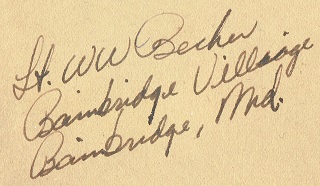 Lt. WW Becker
Bainbridge Village
Bainbridge, Md.